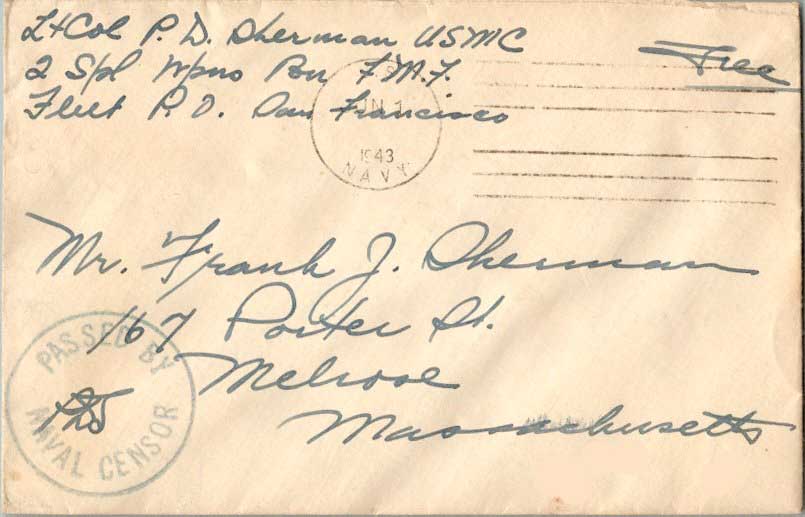 Lt Col P. D. Sherman USMC
2 Spl Wpns Bn F.M.F.
Fleet P.O. San Francisco
Free
1943
NAVY
Mr. Frank J. Sherman
167 Porter St.
Melrose
Massachusetts
PASSED BY
NAVAL CENSOR